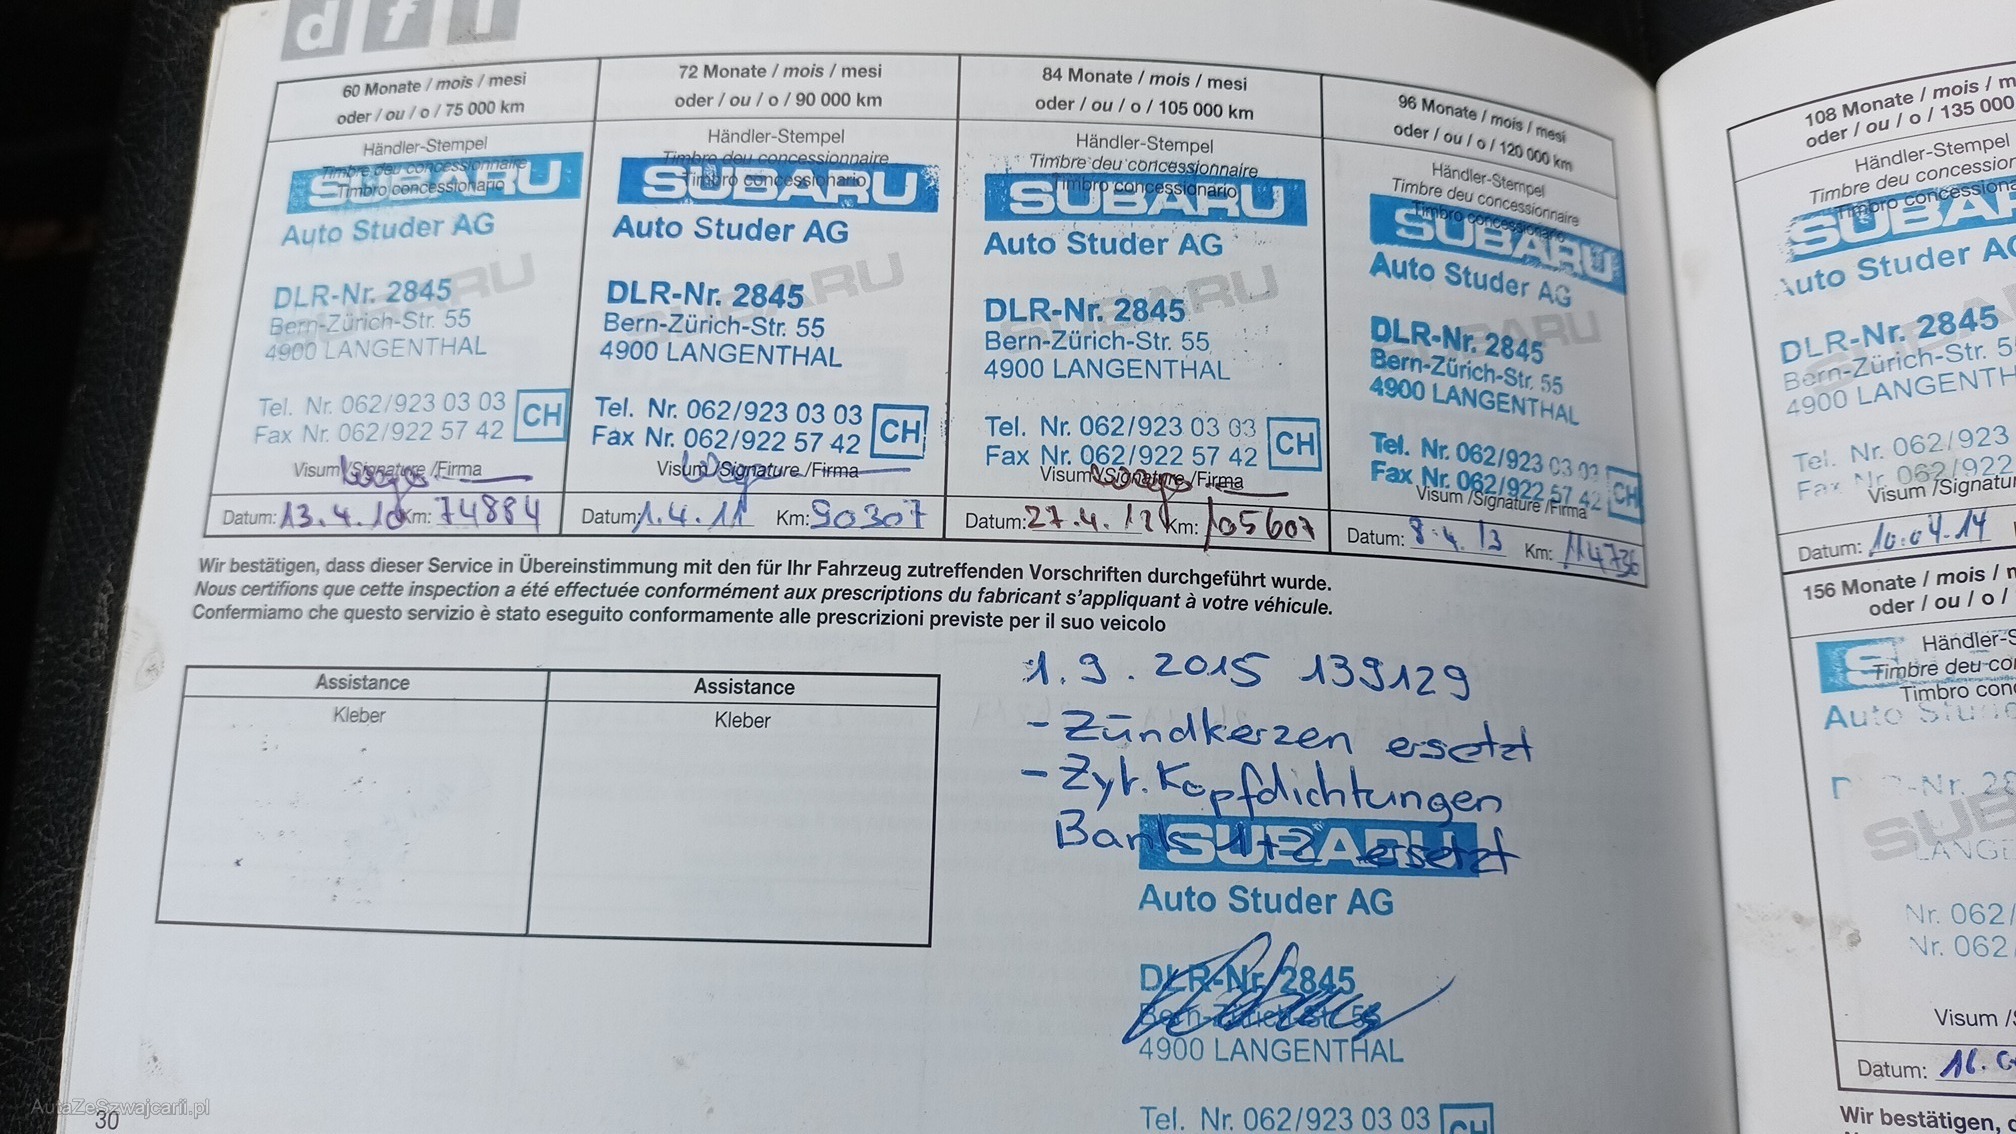 d f i
60 Monate / mois / mesi
oder / ou / o / 75 000 km
Händler-Stempel
Timbre deu concessionnaire
Timbro concessionario
SUBARU
Auto Studer AG
SUBARU
DLR-Nr. 2845
Bern-Zürich-Str. 55
4900 LANGENTHAL
Tel. Nr. 062/923 03 03
Fax Nr. 062/922 57 42
CH
Visum /Signature /Firma
Datum: 13.4.10 Km: 74884
72 Monate / mois / mesi
oder / ou / o / 90 000 km
Händler-Stempel
Timbre deu concessionnaire
Timbro concessionario
SUBARU
Auto Studer AG
SUBARU
DLR-Nr. 2845
Bern-Zürich-Str. 55
4900 LANGENTHAL
Tel. Nr. 062/923 03 03
Fax Nr. 062/922 57 42
CH
Visum /Signature /Firma
Datum: 1.4.11 Km: 90307
84 Monate / mois / mesi
oder / ou / o / 105 000 km
Händler-Stempel
Timbre deu concessionnaire
Timbro concessionario
SUBARU
Auto Studer AG
SUBARU
DLR-Nr. 2845
Bern-Zürich-Str. 55
4900 LANGENTHAL
Tel. Nr. 062/923 03 03
Fax Nr. 062/922 57 42
CH
Visum /Signature /Firma
Datum: 27.4.12 Km: 105607
96 Monate / mois / mesi
oder / ou / o / 120 000 km
Händler-Stempel
Timbre deu concessionnaire
Timbro concessionario
SUBARU
Auto Studer AG
SUBARU
DLR-Nr. 2845
Bern-Zürich-Str. 55
4900 LANGENTHAL
Tel. Nr. 062/923 03 03
Fax Nr. 062/922 57 42
CH
Visum /Signature /Firma
Datum: 8.4.13 Km: 114736
Wir bestätigen, dass dieser Service in Übereinstimmung mit den für Ihr Fahrzeug zutreffenden Vorschriften durchgeführt wurde.
Nous certifions que cette inspection a été effectuée conformément aux prescriptions du fabricant s'appliquant à votre véhicule.
Confermiamo che questo servizio è stato eseguito conformamente alle prescrizioni previste per il suo veicolo
Assistance
Kleber
Assistance
Kleber
1.9.2015 139129
- Zündkerzen ersetzt
- Zyl. Kopfdichtungen
Bank 1+2 ersetzt
SUBARU
Auto Studer AG
DLR-Nr. 2845
Bern-Zürich-Str. 55
4900 LANGENTHAL
Tel. Nr. 062/923 03 03
CH
30
AutaZeSzwajcarii.pl
108 Monate / mois / m
oder / ou / o / 135 000
Händler-Stempel
Timbre deu concessionna
Timbro concessiona
SUBA
Auto Studer AG
DLR-Nr. 2845
Bern-Zürich-Str. 5
4900 LANGENTH
Tel. Nr. 062/923
Fax Nr. 062/922
Visum /Signatur
Datum: 10.04.14
156 Monate / mois / m
oder / ou / o /
Händler-S
Timbre deu co
Timbro con
Auto Stude
-Nr. 28
SUB
LANGE
Nr. 062/
Nr. 062
Visum /S
Datum: 16.
Wir bestätigen, d